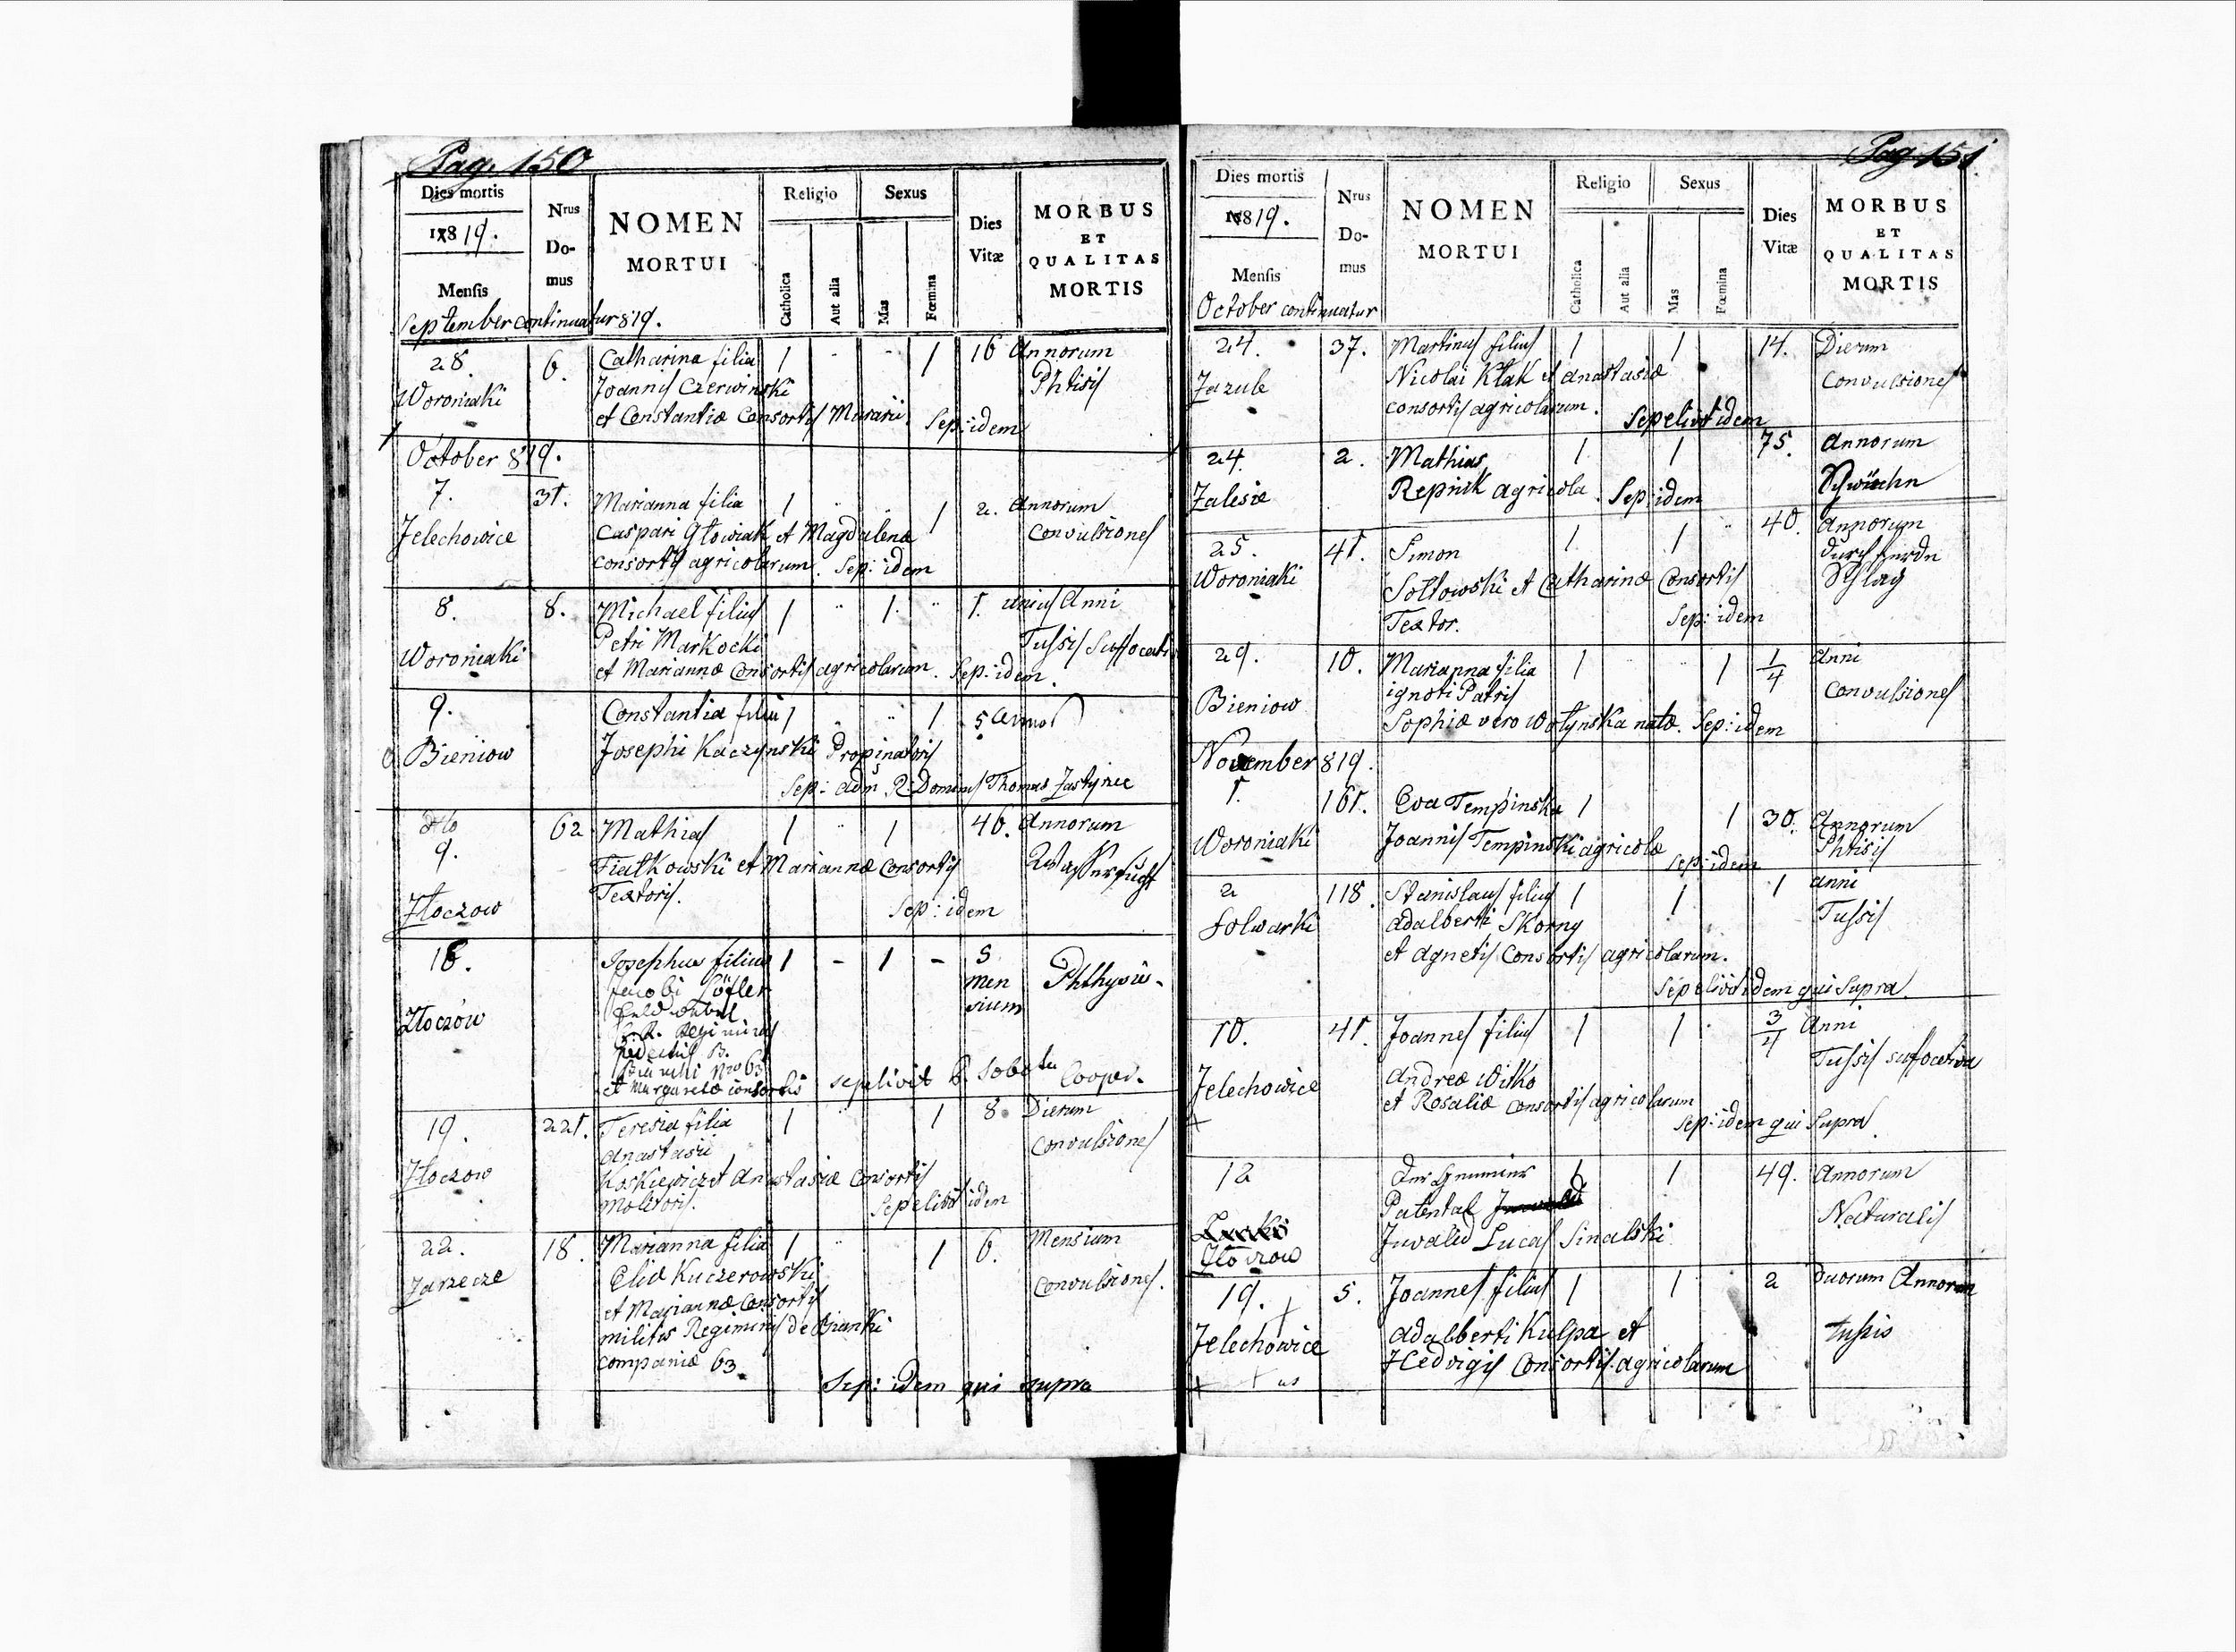 Pag. 150
Dies mortis
1819.
Mensis
Nrus
Do-
mus
NOMEN
MORTUI
Religio
Catholica
Aut alia
Sexus
Mas
Fœmina
Dies
Vitæ
MORBUS
ET
QUALITAS
MORTIS
September continuatur 819.
28. 6. Catharina filia 1 1 16 Annorum
Woroniaki Joannis Czerwinski Phtisis
et Constantiæ Consortis Murarii. Sep: idem
October 819.
7. 31. Marianna filia 1 1 2. Annorum
Jelechowice Caspari Głowiak et Magdalenæ Convulsiones
consortis agricolarum. Sep: idem
8. 8. Michael filius 1 1 1. unius Anni
Petri Markocki Tussis Suffocati
Woroniaki et Mariannæ Consortis agricolarum. Sep: idem.
9. Constantia filia 1 1 5 Annor
Bieniow Josephi Kaczynski Propinatoris
Sep: adm R. Dominus Thomas
dtto 62 Mathias 1 1 46. Annorum
9. Fiałkowski et Mariannæ Consortis Wassersucht
Złoczow Textoris.
Sep: idem
18. Josephus filius 1 - 1 - 5
Jacobi Löfler men Phthysis.
Złoczów sium
Regiment
Nro 63
et Margaretæ consortis sepelivit Cooper.
19. 221. Teresia filia 1 1 8. Dierum
Anastasii Convulsiones
Złoczow Koskiewicz et Anastasiæ Consortis
Molitoris. Sepelivit idem
22. 18. Marianna filia 1 1 6. Mensium
Zarzecze Eliæ Kuczerowski Convulsiones.
et Mariannæ Consortis
militis Regiminis de Bianki
companiæ 63.
Sep: idem qui supra
Pag 151
Dies mortis
1819.
Mensis
Nrus
Do-
mus
NOMEN
MORTUI
Religio
Catholica
Aut alia
Sexus
Mas
Fœmina
Dies
Vitæ
MORBUS
ET
QUALITAS
MORTIS
October continuatur
24. 37. Martinus filius 1 1 14. Dierum
Zazule Nicolai Kłak et Anastasiæ Convulsiones
consortis agricolarum. Sepelivit idem
24. 2. Mathias 1 1 75. Annorum
Zalesie Repnik agricola. Sep: idem
25. 41. Simon 1 1 40. Annorum
Woroniaki Sołtowski et Catharinæ Consortis Schlag
Textor. Sep: idem
29. 10. Marianna filia 1 1 1/4 Anni
ignoti Patris Convulsiones
Bieniow Sophiæ vero Wołynska natæ. Sep: idem
November 819.
1. 161. Eva Tempinska 1 1 30. Annorum
Woroniaki Joannis Tempinski agricolæ Phtisis
Sep: idem
2 118. Stanislaus filius 1 1 1 Anni
Folwarki Adalberti Skorny Tussis
et Agnetis Consortis agricolarum.
Sepelivit idem qui Supra
10. 41. Joannes filius 1 1 3/4 Anni
Andreæ Witko Tussis suffocativa
Jelechowice et Rosaliæ Consortis agricolarum
Sep: idem qui Supra
12 1 1 49. Annorum
Patental Naturalis
Złoczow Invalid Lucas Sinalski
19. 5. Joannes filius 1 1 2 duorum Annorum
Jelechowice Adalberti Kulpa et Tussis
Hedvigis Consortis agricolarum